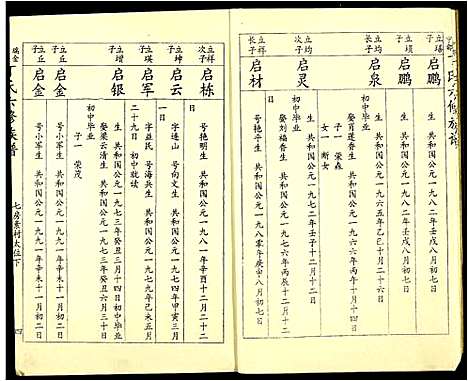 丁氏六修族谱
立璠子
启鹏
生 共和国公元一九八二年壬戌八月初七
立琐子
启鹏
生 共和国公元一九八二年壬戌八月初七日
立均子
启泉
生 共和国公元一九六五年乙巳十月
娶肖莲春生 共和国公元一九六六年丙午十月
子一 荣森
女一 断女
立均次子
启灵
生 共和国公元一九七二年壬子十二月
娶刘福香生 共和国公元一九七六年丙辰十二月二日
初中毕业
立祥长子
启材
号艳平生 共和国公元一九八零年庚申八月初七
立祥次子
启栋
号艳明生 共和国公元一九八一年辛酉十二月二十
日
立坤子
启云
字连山 号向文生 共和国公元一九七四年甲寅三
一日
立瑛子
启军
字益民 号海兵生 共和国公元一九七九年己未五月
二十九日 初中肄读
立增子
启银
生 共和国公元一九七三年癸丑三月十四日初中毕业
娶梁云清生 共和国公元一九七三年癸丑六月三十日
初中毕业
子一 荣茂
立丘子
启金
号小军生 共和国公元一九九一年辛未十一月初二
立丘子
启金
号小军生 共和国公元一九九一年辛未十一月初二日
瑞金丁氏六修族谱
七房素村太位下
四